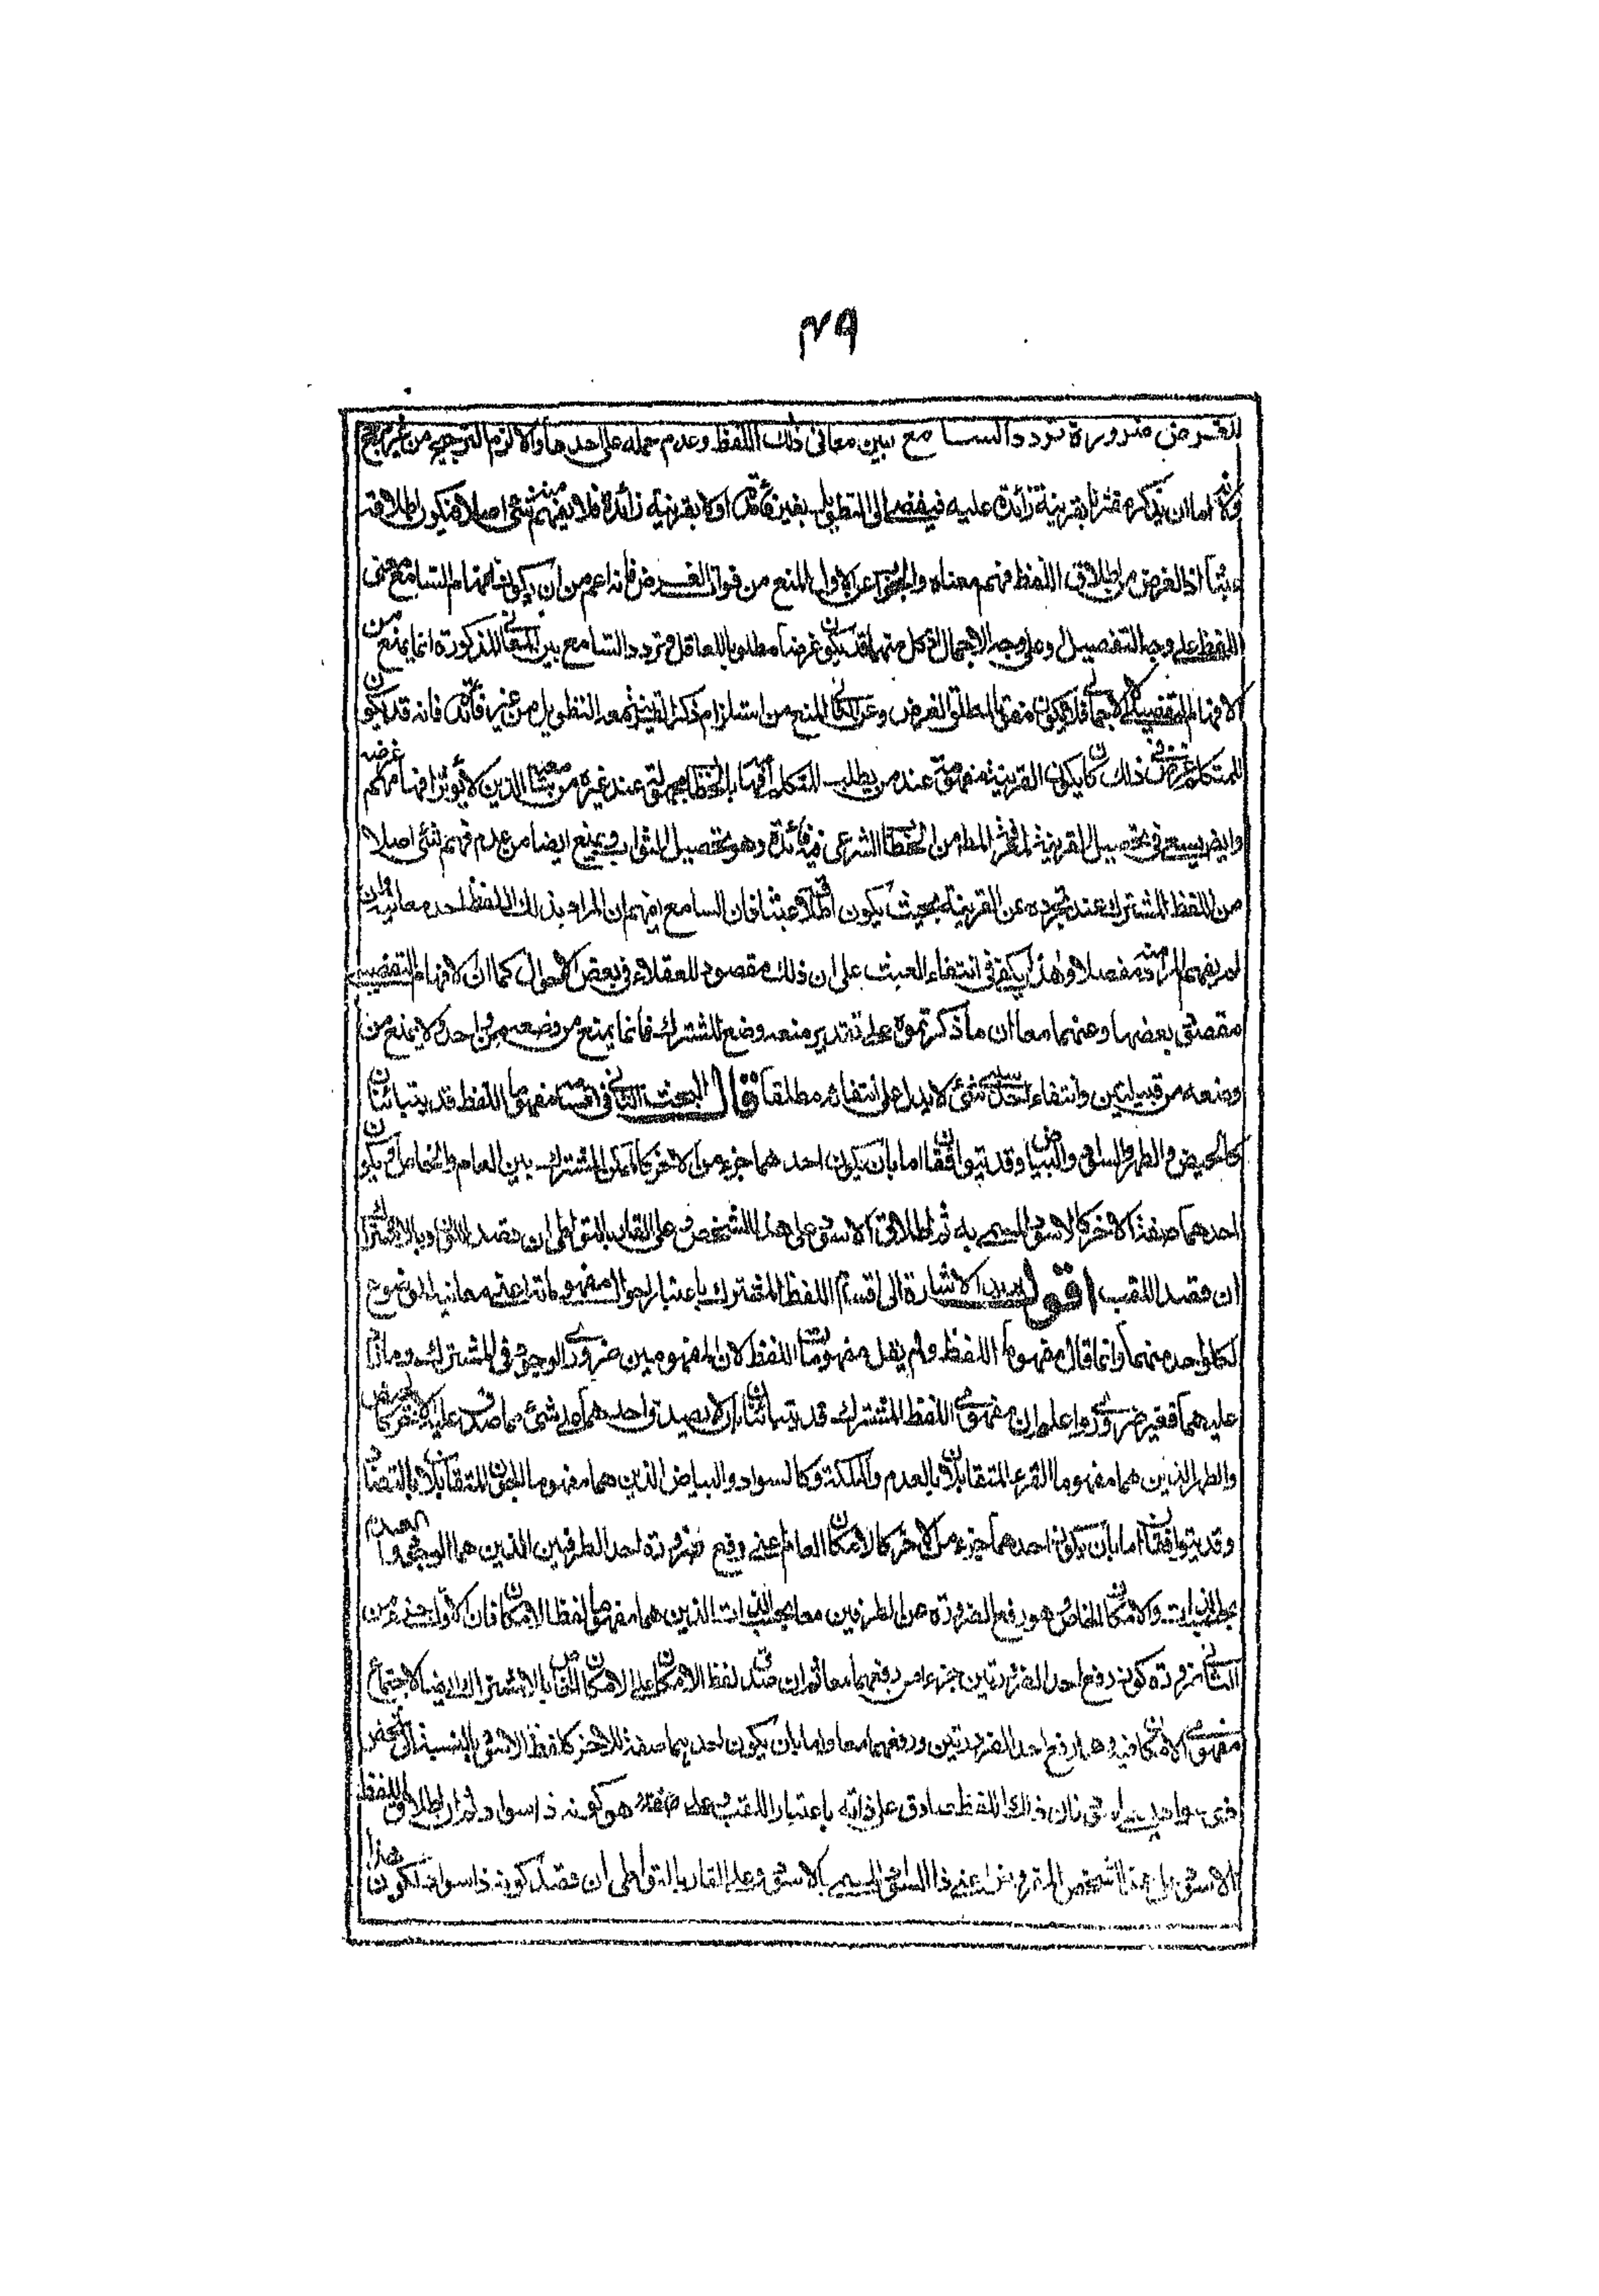 ٤٩
للغرض ضرورة تردد السامع بين معانى ذلك اللفظ وعدم حمله على احدها والا لزم الترجيح من غير مرجح
ولانه اما ان يذكر مقترنا بقرينة زائدة عليه فيفضى الى التطويل بغير فائدة اولا بقرينة زائدة فلا يفهم منه شئ اصلا فيكون اطلاقه
عبثا اذ الغرض من اطلاق اللفظ فهم معناه والجواب عن الاول المنع من فوات الغرض فانه اعم من ان يكون افهام السامع معنى
اللفظ على وجه التفصيل وعلى وجه الاجمال اذ كل منهما قد يكون غرضا مطلوبا للعاقل وتردد السامع بين المعانى المذكورة انما يمنع من
الافهام التفصيلى لا الاجمالى فلا يكون مفوتا لمطلق الغرض وعن الثانى المنع من استلزام ذكر القرينة معه التطويل من غير فائدة فانه قد يكون
للمتكلم غرض فى ذلك كما يكون القرينة مفهومة عند من يطلب المتكلم افهامه بالخطاب مجهولة عند غيره من الذين لا يؤثر افهامهم غرضه
وايضا يسعى فى تحصيل القرينة المراد من الخطاب الشرعى فيه فائدة وهو تحصيل الثواب ويمنع ايضا من عدم فهم شئ اصلا
من اللفظ المشترك عند تجرده عن القرينة بحيث يكون اطلاقه عبثا فان السامع يفهم ان المراد بذلك اللفظ احد معانيه وان
لم يفهم المراد منه مفصلا وهذا يكفى فى انتفاء العبث على ان ذلك مقصود للعقلاء فى بعض الاحوال كما ان الافهام التفصيلى
مقصود فى بعضها وعنهما معا ان ما ذكرتموه على تقدير منعه وضع المشترك فانما يمنع من وضعه من واحد ولا يمنع من
وضعه من قبيلتين وانتفاء احد سببى شئ لا يدل على انتفائه مطلقا قال البحث الثانى فى اقسامه مفهوما اللفظ قد يتباينان
كالحيض والطهر والسواد والبياض وقد يتوافقان اما بان يكون احدهما جزء من الاخر كالممكن المشترك بين العام والخاص او يكون
احدهما صفة الاخر كالاسود المسمى به ثم اطلاق الاسود على هذا الشخص وعلى القار بالتواطى ان قصد اللون وبالاشتراك
ان قصد اللقب اقول يريد الاشارة الى اقسام اللفظ المشترك باعتبار احوال مفهوماته اعنى معانيه الموضوع
لكل واحد منهما وانما قال مفهوما اللفظ ولم يقل مفهومات اللفظ لان المفهومين ضرورى الوجود فى المشترك وما زاد
عليهما فغير ضرورى واعلم ان مفهومى اللفظ المشترك قد يتباينان بان لا يصدق احدهما على شئ مما صدق عليه الاخر كالحيض
والطهر الذين هما مفهوما القرء المتقابلان بالعدم والملكة وكالسواد والبياض الذين هما مفهوما الجون المتقابلان بالتضاد
وقد يتوافقان اما بان يكون احدهما جزء من الاخر كالامكان العام اعنى رفع ضرورة احد الطرفين الذين هما الوجود والعدم
والامكان الخاص هو رفع الضرورة عن الطرفين معا بحسب الذات الذين هما مفهوما لفظ الامكان فان الاول جزء من
الثانى ضرورة كون رفع احد الضرورتين جزء من رفعهما معا ثم ان صدق لفظ الامكان على الامكان الخاص بالاشتراك ايضا لاجتماع
مفهومى الامكان فيه وهما رفع احد الضرورتين ورفعهما معا واما بان يكون احدهما صفة للاخر كلفظ الاسود بالنسبة الى شخص
ذى سواد سمى اسود فان ذلك اللفظ صادق على ذاته باعتبار اللقب وعلى صفته هو كونه ذا سواد ثم ان اطلاق اللفظ
الاسود على هذا الشخص اعنى ذا السواد المسمى بالاسود وعلى القار بالتواطى ان قصد كونه ذا سواد لكون هذا